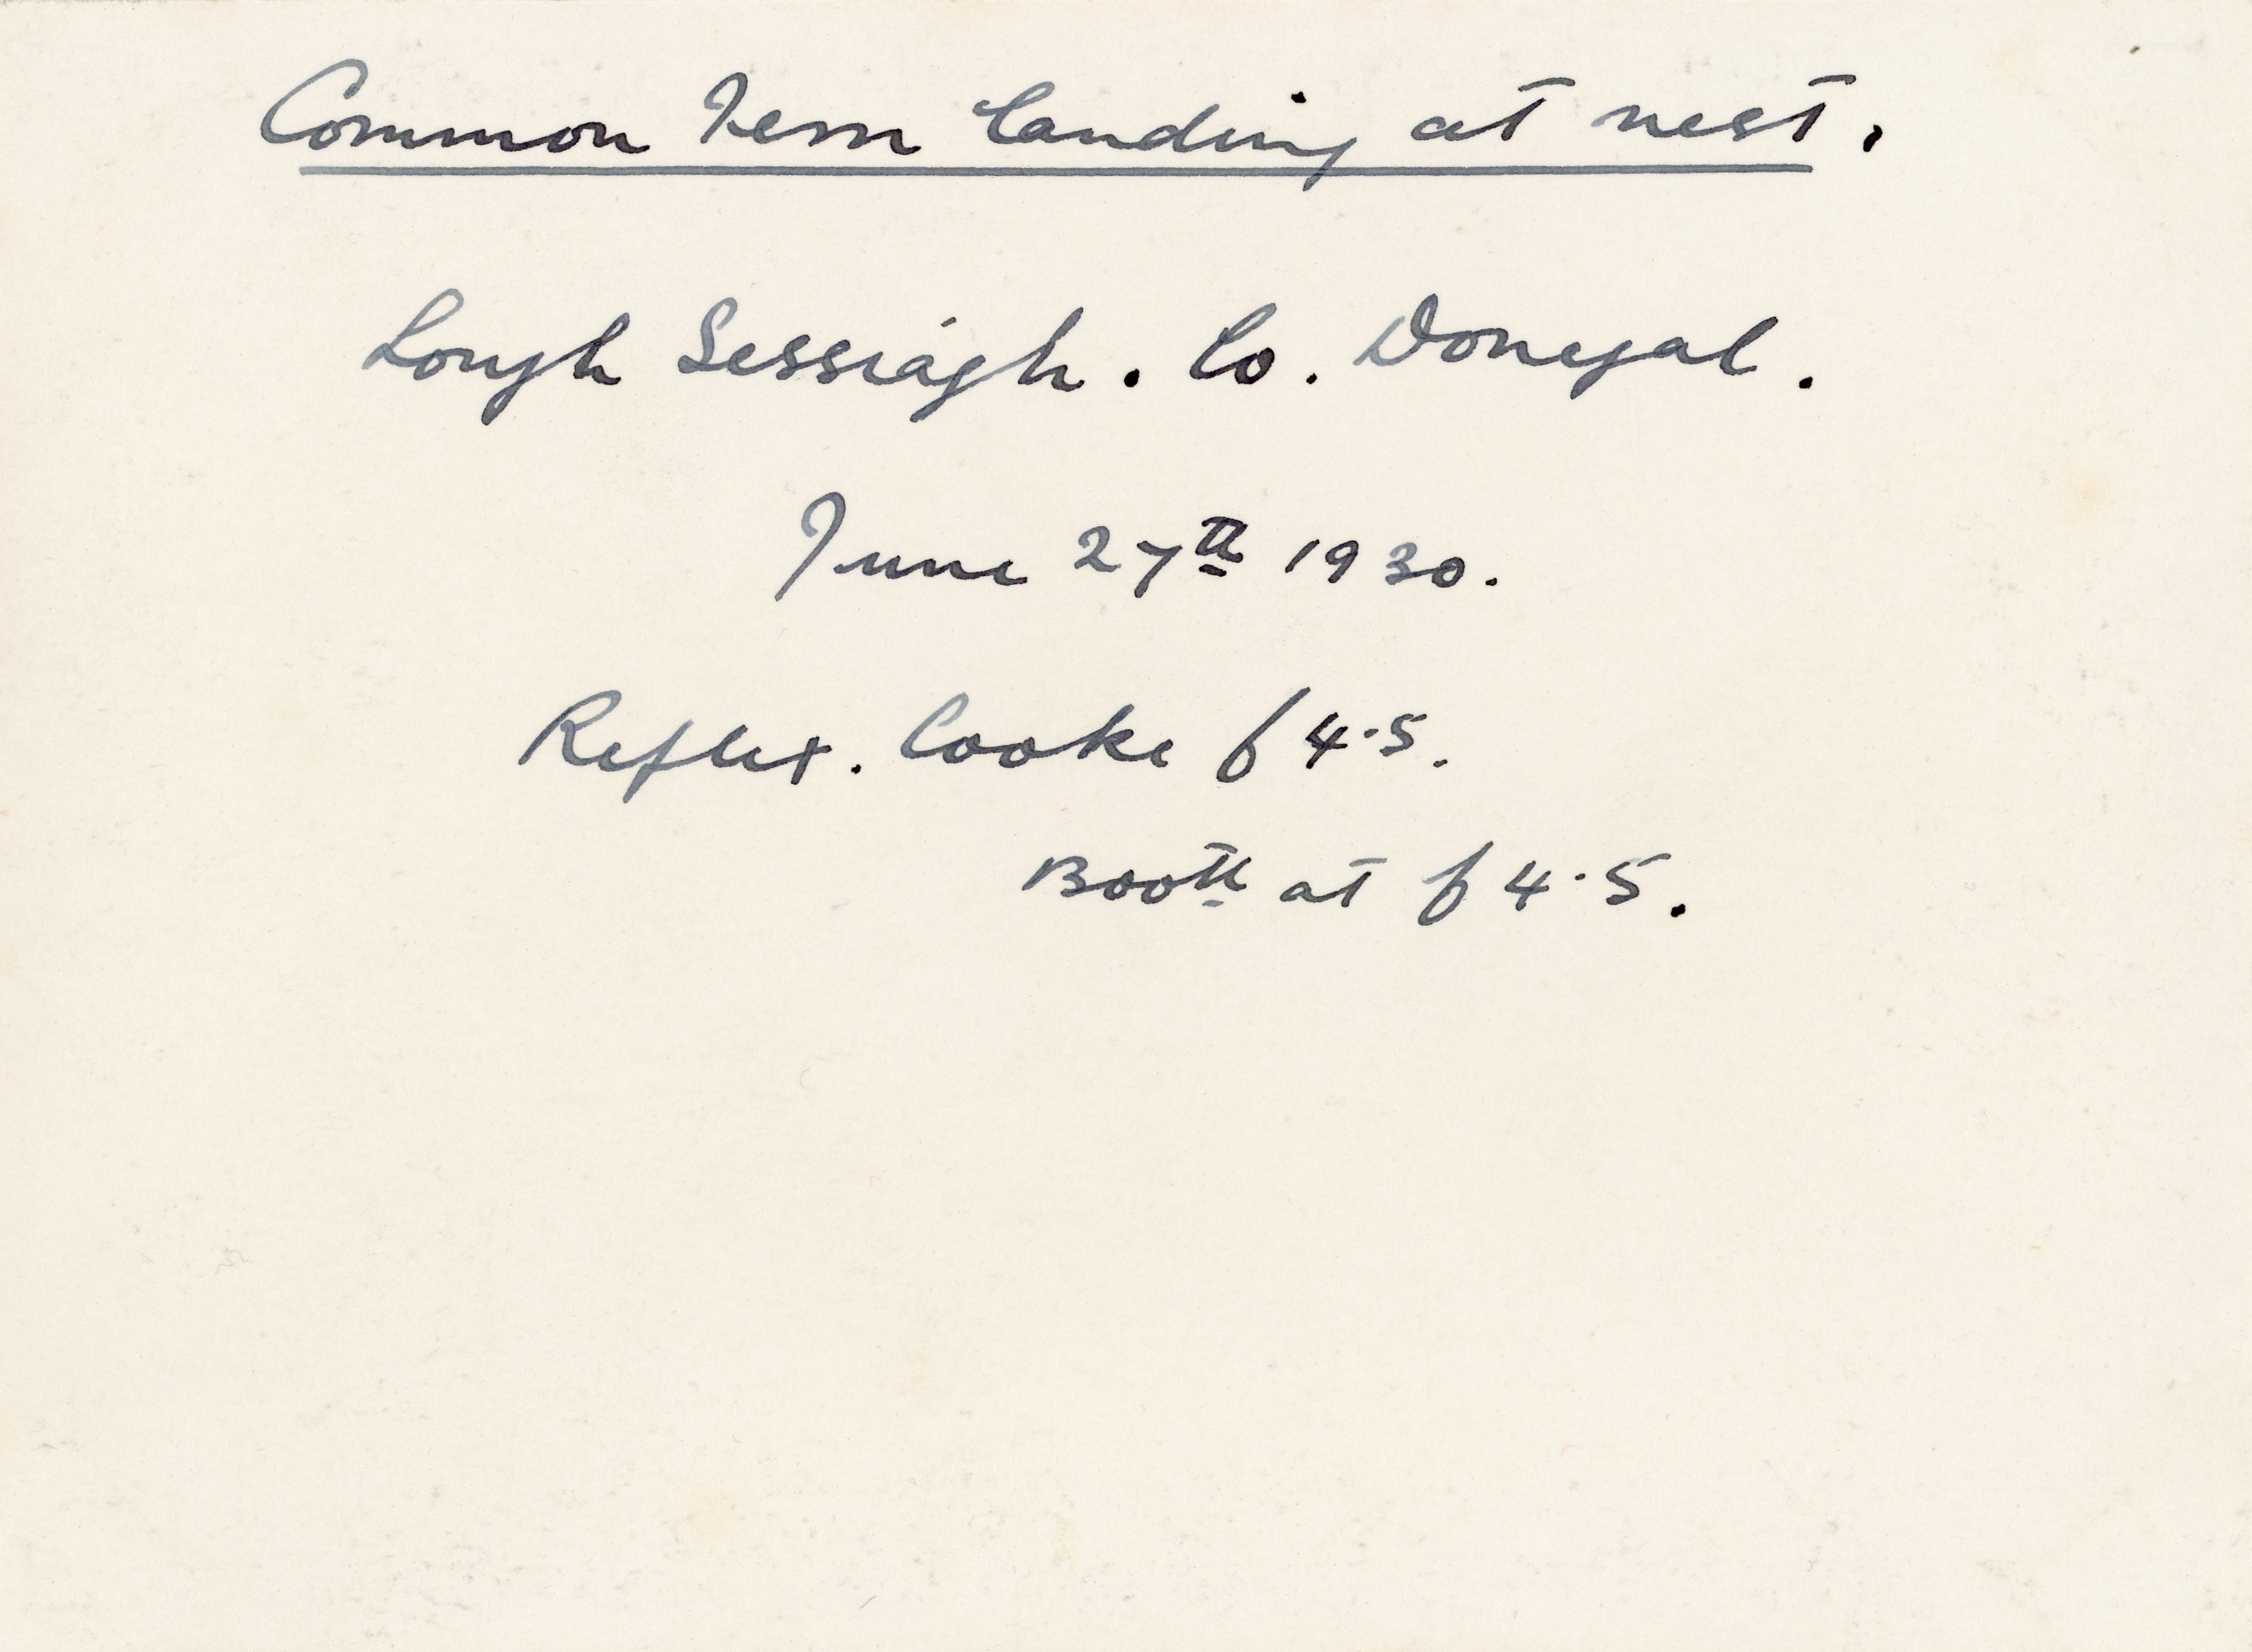 Common Tern landing at nest.
Lough Sessiagh. Co. Donegal.
June 27th 1930.
Reflex. Cooke f4.5.
1/300th at f4.5.